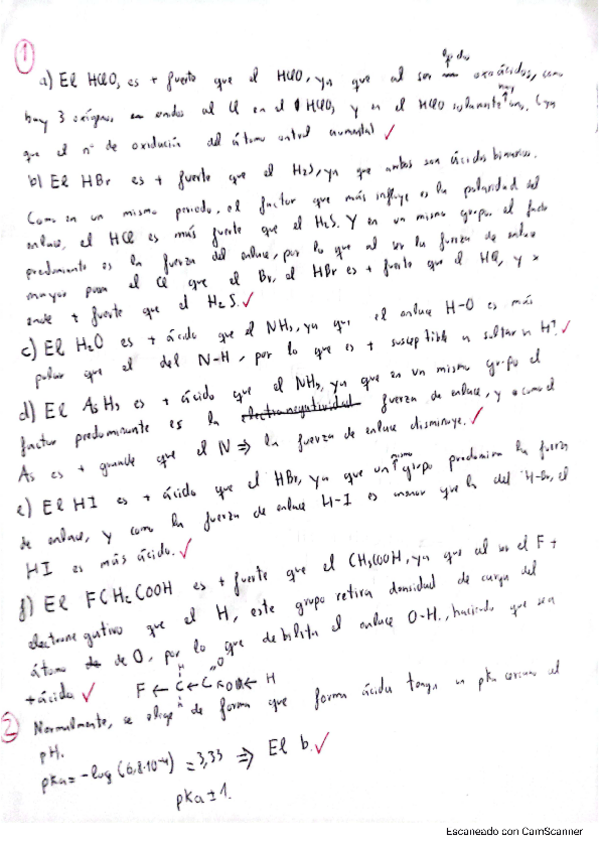 1
a) El HClO3 es + fuerte que el HClO, ya que al ser oxoácidos, como
hay 3 oxígenos en al Cl en el HClO3 y en el HClO solamente hay uno. (ya
que el nº de oxidación del átomo central aumenta) ✓
b) El HBr es + fuerte que el H2S, ya que ambos son ácidos binarios.
Como en un mismo periodo, el factor que más influye es la polaridad del
enlace, el HCl es más fuerte que el H2S. Y en un mismo grupo el factor
predominante es la fuerza del enlace, por lo que al ser la fuerza de enlace
mayor para el Cl que el Br, el HBr es + fuerte que el HCl, y x
ende + fuerte que el H2S. ✓
c) El H2O es + ácido que el NH3, ya que el enlace H-O es más
polar que el del N-H, por lo que es + susceptible a soltar un H+. ✓
d) El AsH3 es + ácido que el NH3, ya que en un mismo grupo el
factor predominante es la electronegatividad fuerza de enlace, y como el
As es + grande que el N ⇒ la fuerza de enlace disminuye. ✓
e) El HI es + ácido que el HBr, ya que un mismo grupo predomina la fuerza
de enlace, y como la fuerza de enlace H-I es menor que la del H-Br, el
HI es más ácido. ✓
f) El FCH2COOH es + fuerte que el CH3COOH, ya que al ser el F +
electronegativo que el H, este grupo retira densidad de carga del
átomo de O, por lo que debilita el enlace O-H, haciendo que sea
+ ácido ✓
H O
F ← C ← C ← O ← H
H
2 Normalmente, se elige de forma que forma ácida tenga un pka cercano al
pH.
pKa = -log (6,8·10-4) = 3,33 ⇒ El b. ✓
pKa ± 1.
Escaneado con CamScanner